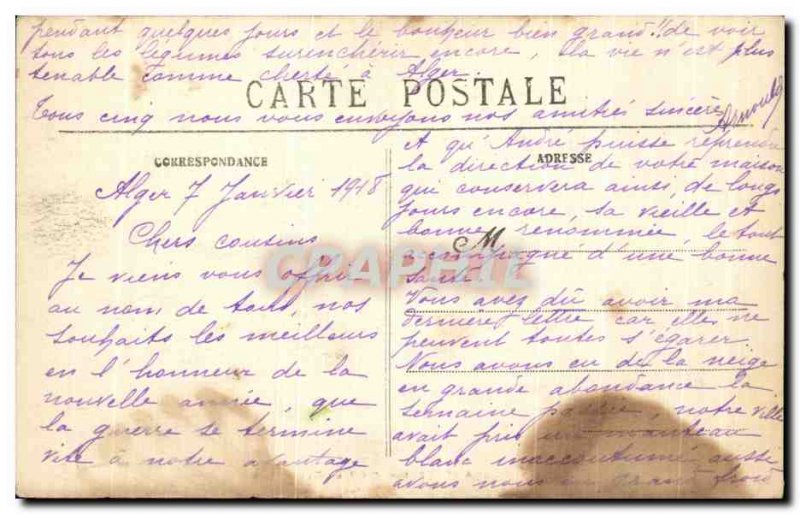 CARTE POSTALE
CORRESPONDANCE
Alger 7 Janvier 1918
Chers cousins
Je viens vous offrir
au nom de tous, nos
souhaits les meilleurs
en l'honneur de la
nouvelle année, que
la guerre se termine
vite à notre avantage
ADRESSE
M
A qu'André puisse reprendre
la direction de votre maison
qui conservera ainsi, de longs
jours encore, sa vieille et
bonne renommée, le tout
accompagné d'une bonne
santé.
Vous avez dû avoir ma
dernière lettre car elles ne
peuvent toutes s'égarer.
Nous avons eu de la neige
en grande abondance la
semaine passée, notre ville
avait pris un manteau
blanc inaccoutumé aussi
avons nous un grand froid
pendant quelques jours et le bonheur bien grand!! de voir
tous les légumes surenchérir encore, la vie n'est plus
tenable comme cherté à Alger.
Tous cinq nous vous envoyons nos amitiés sincères
Arnould
CRAPHIL